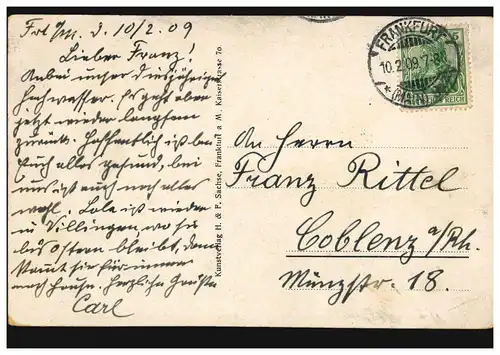 Frt a/m. d. 10/2. 09
Lieber Franz!
Anbei unser diesjähriges
Hochwasser. Es geht aber
jetzt wieder langsam
zurück. Hoffentlich ist bei
Euch alles gesund, bei
uns ist auch noch alles
wohl. Lola ist wieder
in Villingen, wo sie
bis Ostern bleibt, dann
kommt sie für immer
nach Hause. Herzliche Grüße
Carl
Kunstverlag H. & P. Sachse, Frankfurt a M. Kaiserstrasse 70
FRANKFURT
10.2.09.7-8
(MAIN)
5
REICH
An Herrn
Franz Rittel
Coblenz a/Rh.
Münzstr. 18.